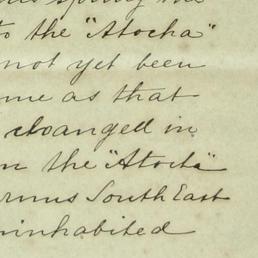 to the "Atocha"
not yet been
me as that
changed in
the "Atocha"
South East
inhabited